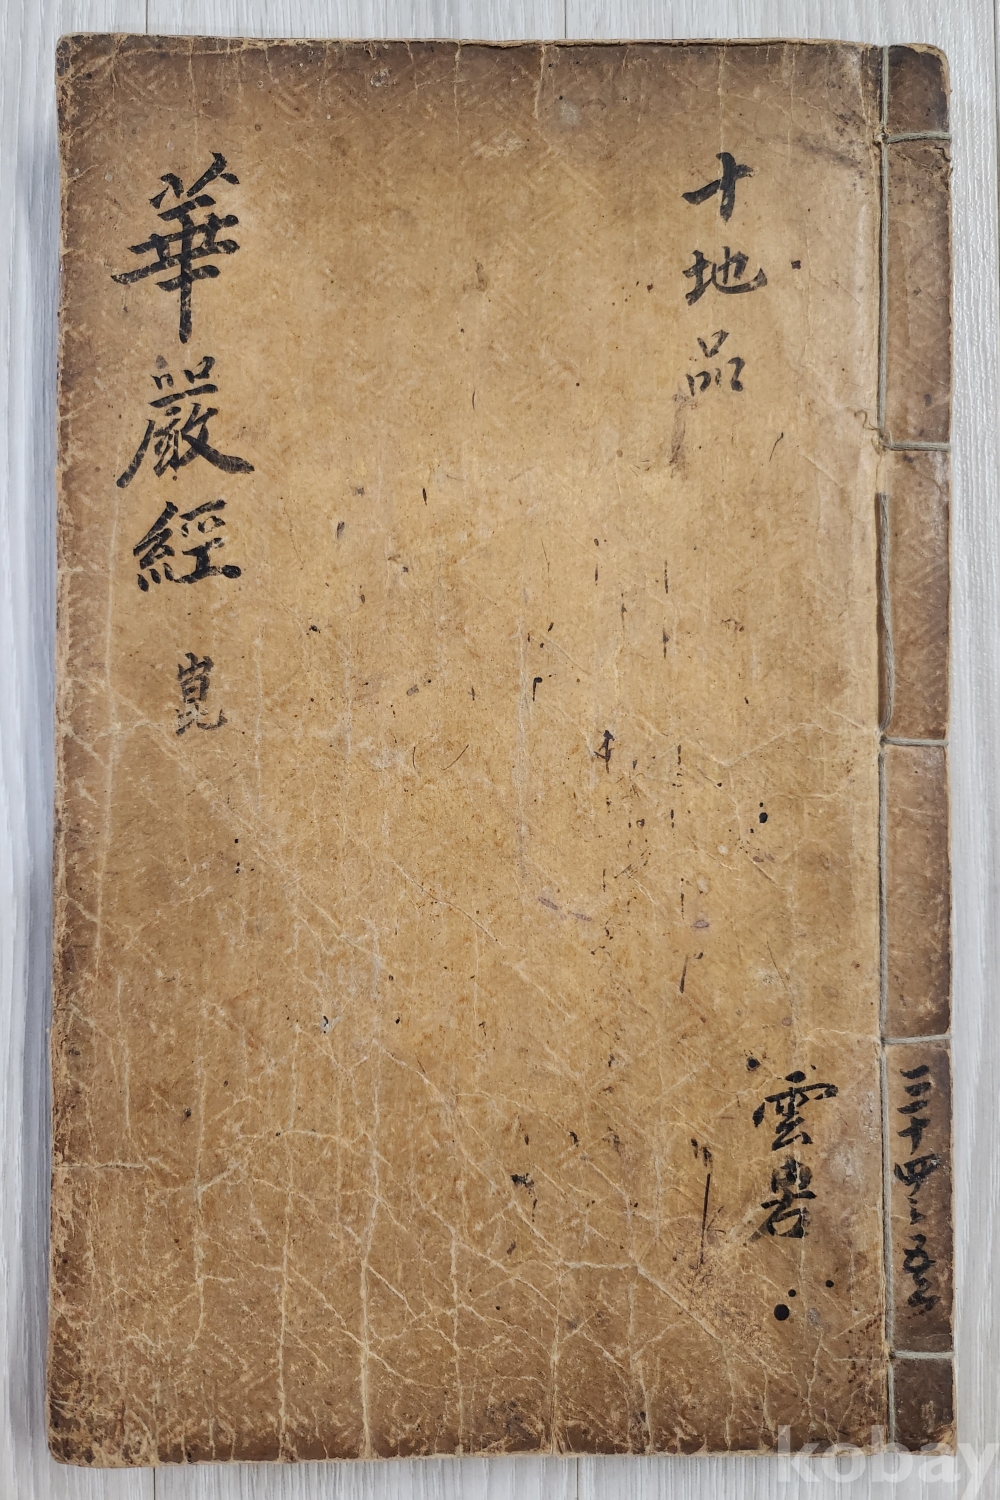 十地品
雲岩
華嚴經 崑
二十四之五六
kobay